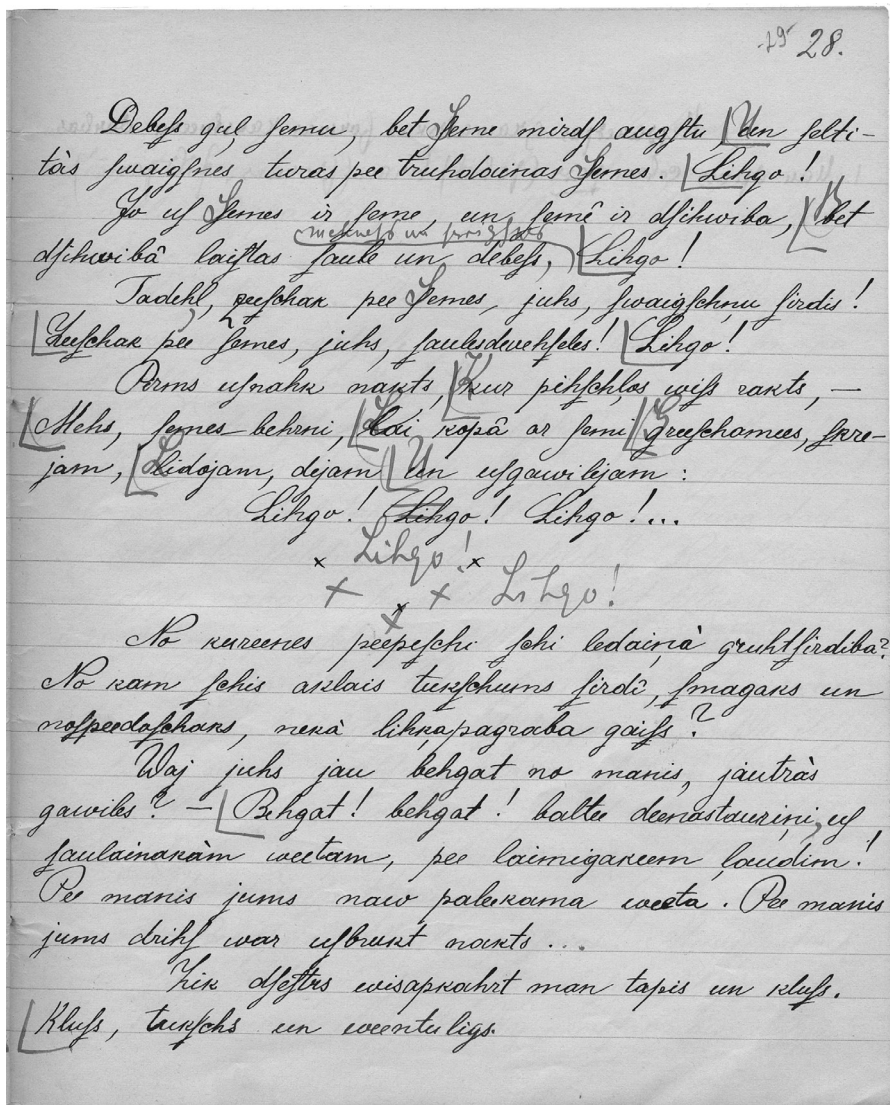 28.
Debeſs guļ ſemu, bet Seme mirdſ augſtu, Un ſelti-
tâs ſwaigſnes turas pee truhdainas Semes. Lihgo!
Jo uſ Semes ir ſeme, un ſemê ir dſihwiba, Bet
mehneſs un ſwaigſnes
dſihwibâ laiſtas ſaule un debeſs, Lihgo!
Tadehļ, zeeſchak pee Semes, juhs, ſwaigſchņu ſirdis!
Zeeſchak pee ſemes, juhs, ſaulesdwehſeles! Lihgo!
Pirms uſnahk nakts, Kur pihſchļos wiſs rakts, —
Mehs, ſemes behrni, Lai kopâ ar ſemi Greeſchamees, ſkre-
jam, Lidojam, dejam Un uſgawilejam:
Lihgo! Lihgo! Lihgo!...
Lihgo!
Lihgo!
No kureenes peepeſchi ſchi ledainà gruhtſirdiba?
No kam ſchis aklais tukſchums ſirdî, ſmagaks un
noſpeedoſchaks, nekà lihķapagraba gaiſs?
Waj juhs jau behgat no manis, jautràs
gawiles? — Behgat! behgat! baltee deenastauriņi, uſ
ſaulainakàm weetam, pee laimigakeem ļaudim!
Pee manis jums naw paleekama weeta. Pee manis
jums drihſ war uſbrukt nakts...
Zik dſeſtrs wisapkahrt man tapis un kluſs.
Kluſs, tukſchs un weentuligs.